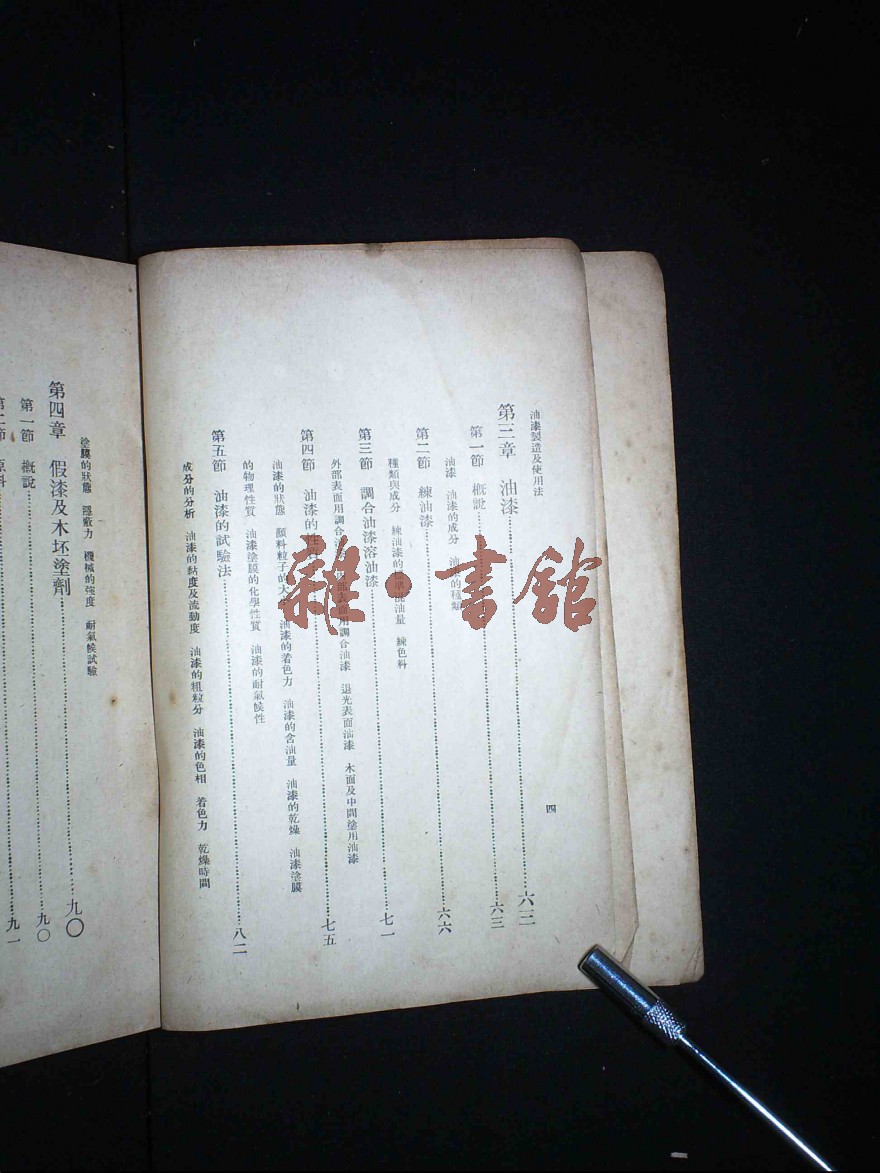 油漆製造及使用法
四
第三章 油漆……六三
第一節 概說……六三
油漆 油漆的成分 油漆的種類
第二節 練油漆……六六
種類與成分 練油漆的標準 油量 練色料
第三節 調合油漆溶油漆……七一
外部表面用調合 部表面用調合油漆 退光表面油漆 木面及中間塗用油漆
第四節 油漆的性……七五
油漆的狀態 顏料粒子的大 油漆的着色力 油漆的含油量 油漆的乾燥 油漆塗膜
的物理性質 油漆塗膜的化學性質 油漆的耐氣候性
第五節 油漆的試驗法……八二
成分的分析 油漆的黏度及流動度 油漆的粗粒分 油漆的色相 着色力 乾燥時間
塗膜的狀態 隱蔽力 機械的強度 耐氣候試驗
第四章 假漆及木坯塗劑……九〇
第一節 概說……九〇
第二節 原料……九一
雜·書館